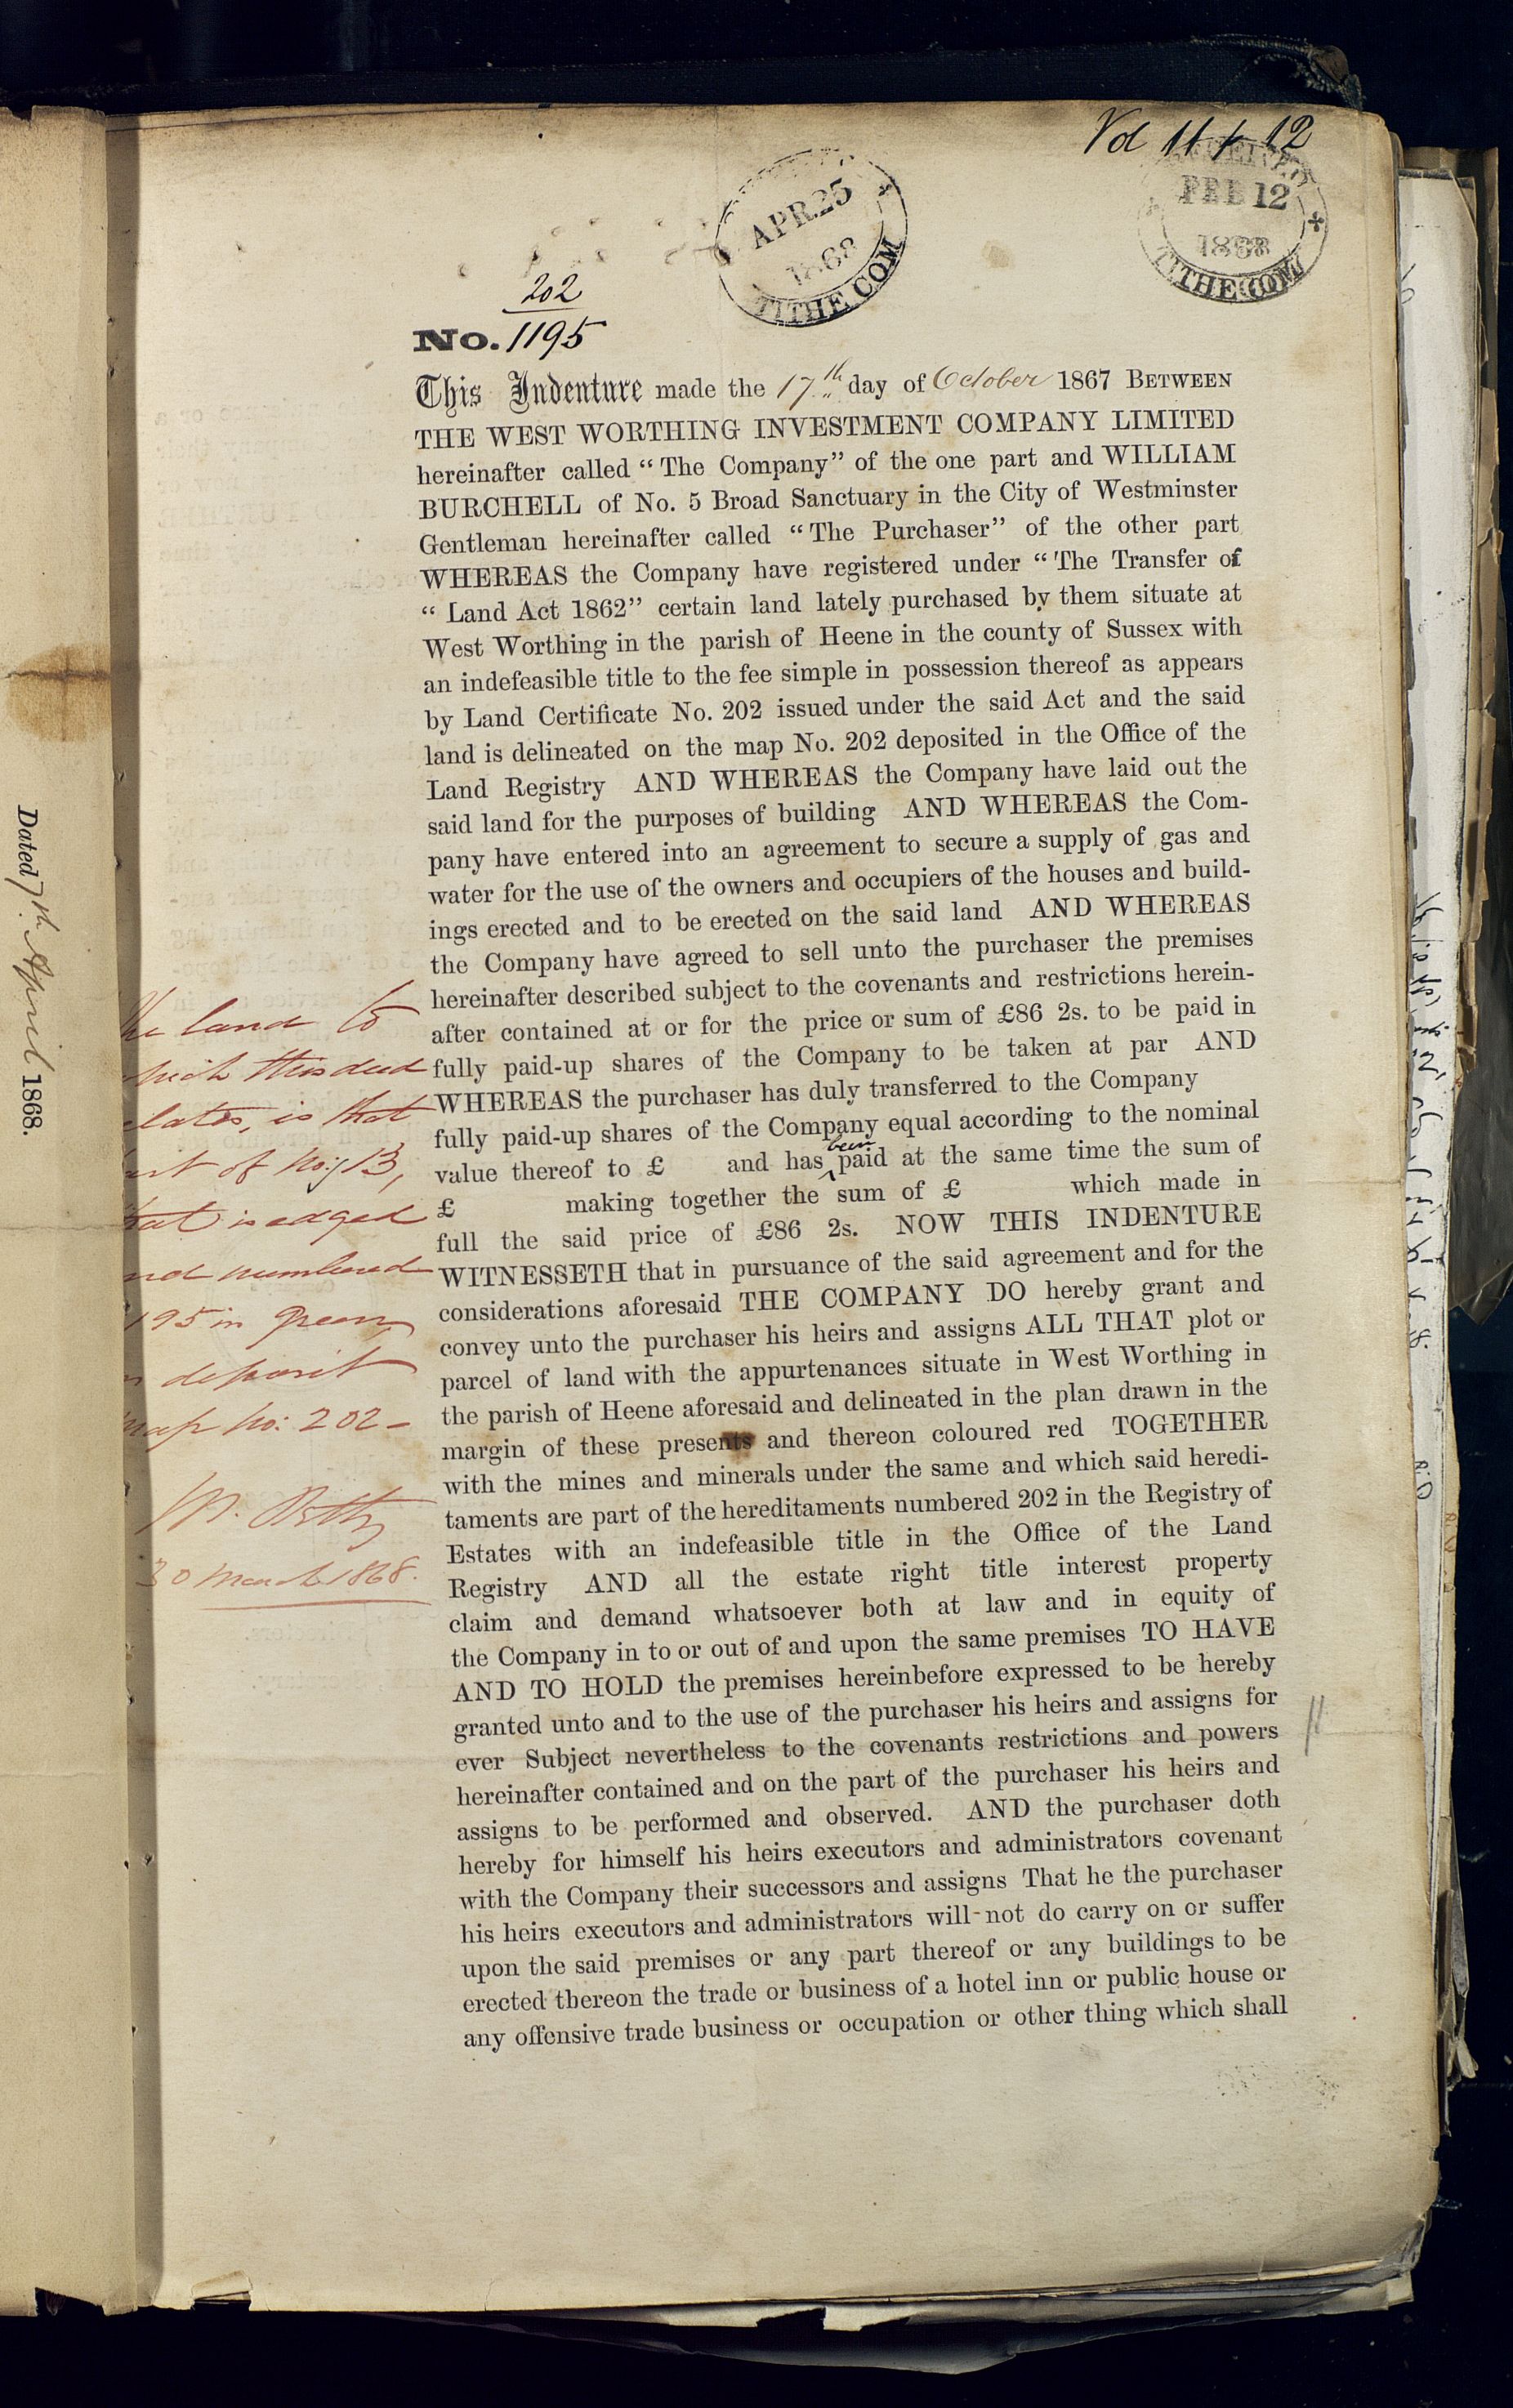 Vol 11 p 12
APR. 25
1868
TITHE COM
FEB 12
1868
TITHE COM
202
No. 1195
This Indenture made the 17th day of October 1867 BETWEEN
THE WEST WORTHING INVESTMENT COMPANY LIMITED
hereinafter called "The Company" of the one part and WILLIAM
BURCHELL of No. 5 Broad Sanctuary in the City of Westminster
Gentleman hereinafter called "The Purchaser" of the other part
WHEREAS the Company have registered under "The Transfer of
"Land Act 1862" certain land lately purchased by them situate at
West Worthing in the parish of Heene in the county of Sussex with
an indefeasible title to the fee simple in possession thereof as appears
by Land Certificate No. 202 issued under the said Act and the said
land is delineated on the map No. 202 deposited in the Office of the
Land Registry AND WHEREAS the Company have laid out the
said land for the purposes of building AND WHEREAS the Com-
pany have entered into an agreement to secure a supply of gas and
water for the use of the owners and occupiers of the houses and build-
ings erected and to be erected on the said land AND WHEREAS
the Company have agreed to sell unto the purchaser the premises
hereinafter described subject to the covenants and restrictions herein-
after contained at or for the price or sum of £86 2s. to be paid in
fully paid-up shares of the Company to be taken at par AND
WHEREAS the purchaser has duly transferred to the Company
fully paid-up shares of the Company equal according to the nominal
value thereof to £ and has been paid at the same time the sum of
£ making together the sum of £ which made in
full the said price of £86 2s. NOW THIS INDENTURE
WITNESSETH that in pursuance of the said agreement and for the
considerations aforesaid THE COMPANY DO hereby grant and
convey unto the purchaser his heirs and assigns ALL THAT plot or
parcel of land with the appurtenances situate in West Worthing in
the parish of Heene aforesaid and delineated in the plan drawn in the
margin of these presents and thereon coloured red TOGETHER
with the mines and minerals under the same and which said heredi-
taments are part of the hereditaments numbered 202 in the Registry of
Estates with an indefeasible title in the Office of the Land
Registry AND all the estate right title interest property
claim and demand whatsoever both at law and in equity of
the Company in to or out of and upon the same premises TO HAVE
AND TO HOLD the premises hereinbefore expressed to be hereby
granted unto and to the use of the purchaser his heirs and assigns for
ever Subject nevertheless to the covenants restrictions and powers
hereinafter contained and on the part of the purchaser his heirs and
assigns to be performed and observed. AND the purchaser doth
hereby for himself his heirs executors and administrators covenant
with the Company their successors and assigns That he the purchaser
his heirs executors and administrators will not do carry on or suffer
upon the said premises or any part thereof or any buildings to be
erected thereon the trade or business of a hotel inn or public house or
any offensive trade business or occupation or other thing which shall
he land to
hich this deed
elates, is that
art of No: 13,
hat is edged
nd numbered
195 in green
n deposit
map No: 202 -
30 March 1868.
Dated 7th April 1868.